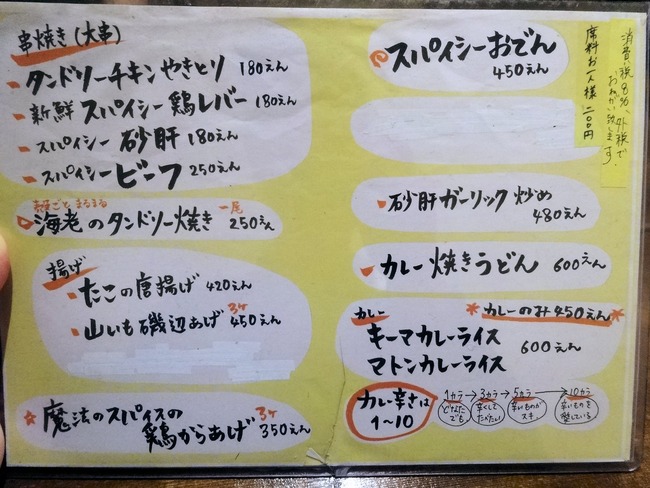 串焼き(大串)
タンドリーチキンやきとり 180えん
新鮮スパイシー鶏レバー 180えん
スパイシー砂肝 180えん
スパイシービーフ 250えん
殻ごとまるまる
海老のタンドリー焼き 一尾 250えん
揚げ
たこの唐揚げ 420えん
山いも磯辺あげ 3ヶ 450えん
魔法のスパイスの
鶏からあげ 3ヶ 350えん
スパイシーおでん
450えん
消費税8%、外税で
おねがい致します。
席料お一人様二〇〇円
砂肝ガーリック炒め
480えん
カレー焼きうどん 600えん
カレー
*カレーのみ450えん*
キーマカレーライス
マトンカレーライス
600えん
カレー辛さは
1~10
1カラ→3カラ→5カラ→10カラ
どなたでも
辛くしてたべたい
辛いものがスキ
辛いものを愛している